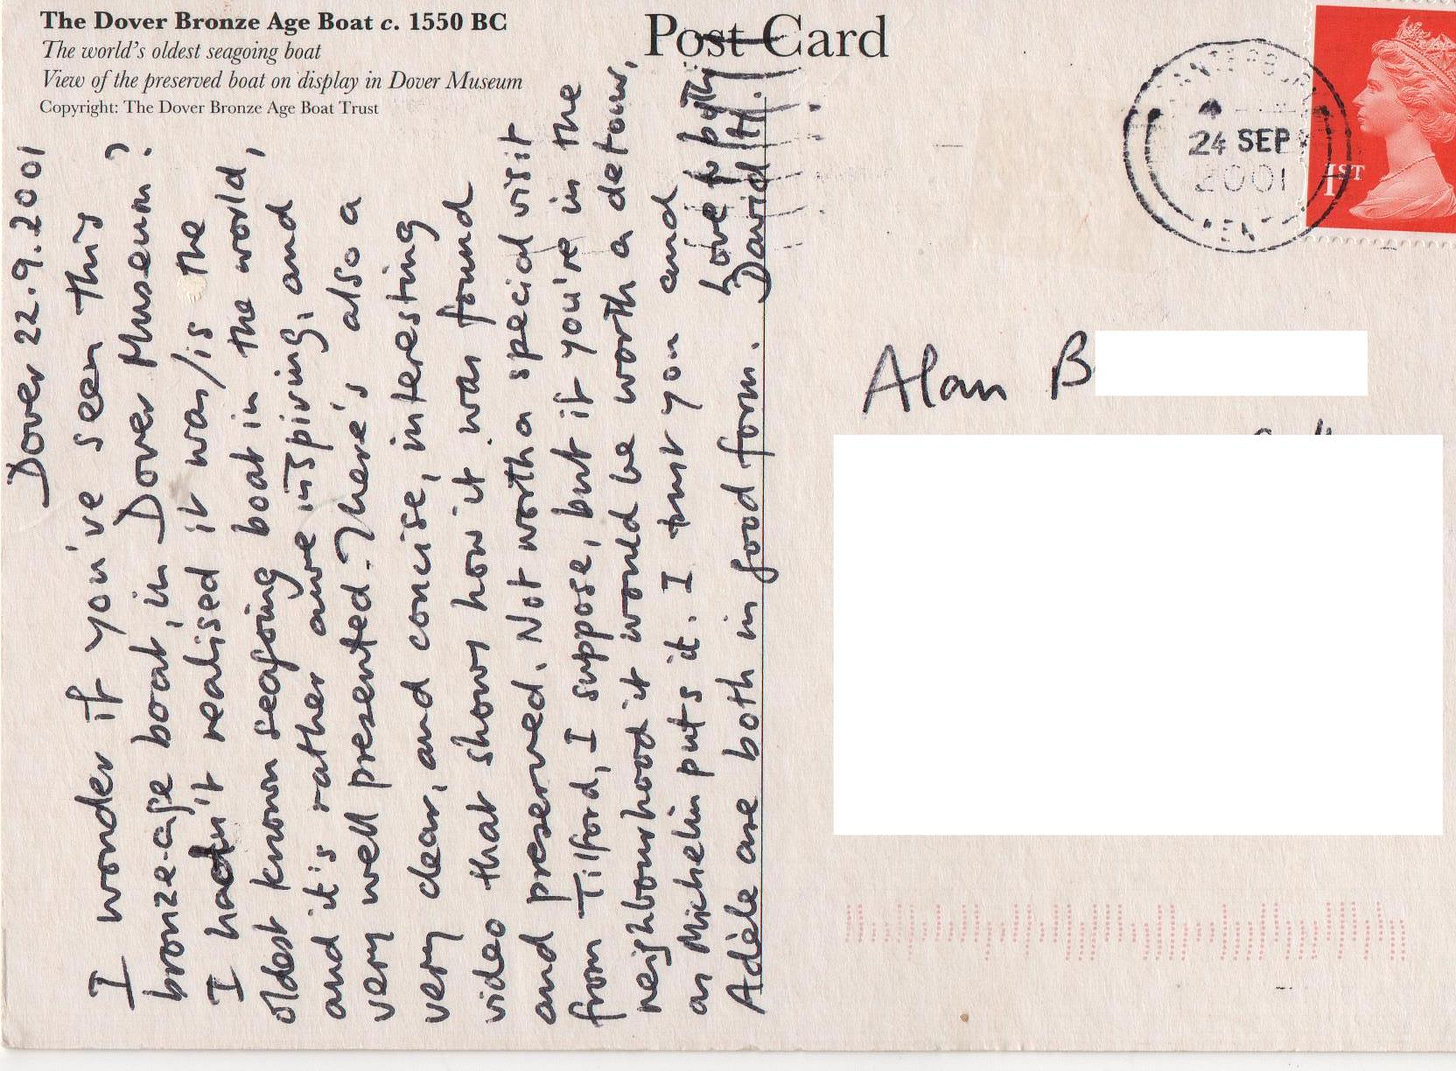 The Dover Bronze Age Boat c. 1550 BC
The world's oldest seagoing boat
View of the preserved boat on display in Dover Museum
Copyright: The Dover Bronze Age Boat Trust
Post Card
Dover 22.9.2001
I wonder if you've seen this
bronze-age boat, in Dover Museum?
I hadn't realised it was/is the
oldest known seagoing boat in the world,
and it's rather awe inspiring, and
very well presented. There's also a
very clear, and concise, interesting
video that shows how it was found
and preserved. Not worth a special visit
from Tilford, I suppose, but if you're in the
neighbourhood it would be worth a detour,
as Michelin puts it. I trust you and
Adèle are both in good form.
Love to both
David H.
CANTERBURY
24 SEP
2001
KENT
1ST
Alan B